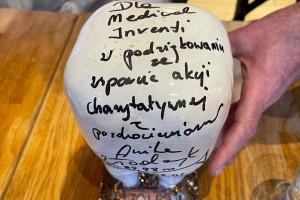 Dla
Medical
Inventi
w podziękowaniu
za
wsparcie akcji
charytatywnej
z
pozdrowieniami
Anita